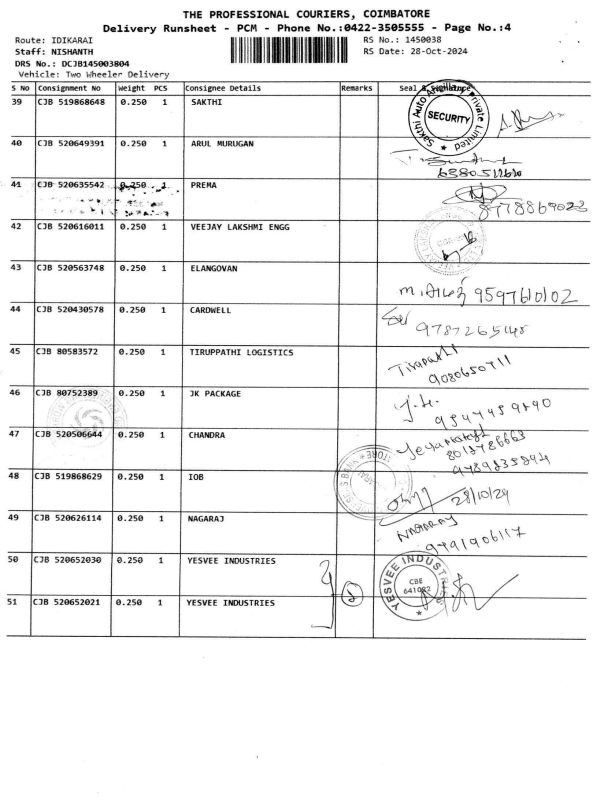 THE PROFESSIONAL COURIERS, COIMBATORE
Delivery Runsheet - PCM - Phone No.:0422-3505555 - Page No.:4
Route: IDIKARAI RS No.: 1450038
Staff: NISHANTH RS Date: 28-Oct-2024
DRS No.: DCJB145003804
Vehicle: Two Wheeler Delivery
S No Consignment No Weight PCS Consignee Details Remarks Seal & Signature
39 CJB 519868648 0.250 1 SAKTHI
Sakthi Auto Private Limited
SECURITY
40 CJB 520649391 0.250 1 ARUL MURUGAN
41 CJB 520635542 0.250 1 PREMA
8778869023
42 CJB 520616011 0.250 1 VEEJAY LAKSHMI ENGG
43 CJB 520563748 0.250 1 ELANGOVAN
9597610102
44 CJB 520430578 0.250 1 CARDWELL
9787265148
45 CJB 80583572 0.250 1 TIRUPPATHI LOGISTICS
Tirupathi
9080650711
46 CJB 80752389 0.250 1 JK PACKAGE
47 CJB 520506644 0.250 1 CHANDRA
48 CJB 519868629 0.250 1 IOB
28/10/24
49 CJB 520626114 0.250 1 NAGARAJ
NAGARAJ
9791906117
50 CJB 520652030 0.250 1 YESVEE INDUSTRIES
YESVEE INDUSTRIES
CBE
641022
51 CJB 520652021 0.250 1 YESVEE INDUSTRIES
2